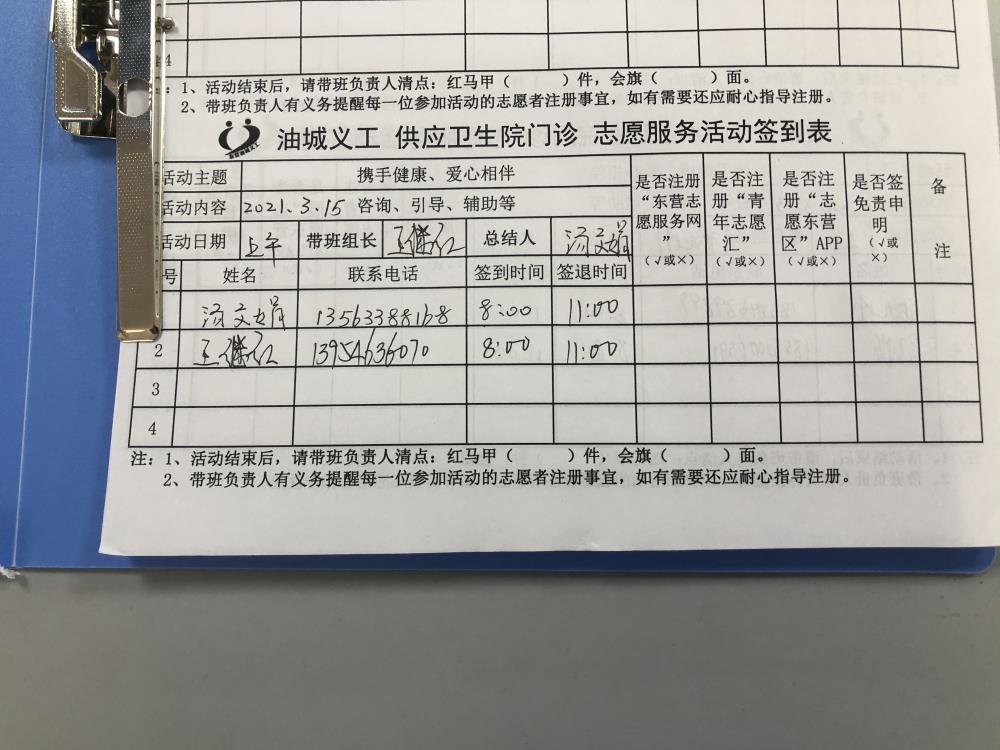 4
：1、活动结束后，请带班负责人清点：红马甲（ ）件，会旗（ ）面。
2、带班负责人有义务提醒每一位参加活动的志愿者注册事宜，如有需要还应耐心指导注册。
油城义工 供应卫生院门诊 志愿服务活动签到表
活动主题 携手健康、爱心相伴 是否注册“东营志愿服务网”（√或×） 是否注册“青年志愿汇”（√或×） 是否注册“志愿东营区”APP（√或×） 是否签免责申明（√或×） 备注
活动内容 2021.3.15 咨询、引导、辅助等
活动日期 上午 带班组长 王继红 总结人 汤文娟
号 姓名 联系电话 签到时间 签退时间
汤文娟 13563388168 8:00 11:00
2 王继红 13954636070 8:00 11:00
3
4
注：1、活动结束后，请带班负责人清点：红马甲（ ）件，会旗（ ）面。
2、带班负责人有义务提醒每一位参加活动的志愿者注册事宜，如有需要还应耐心指导注册。